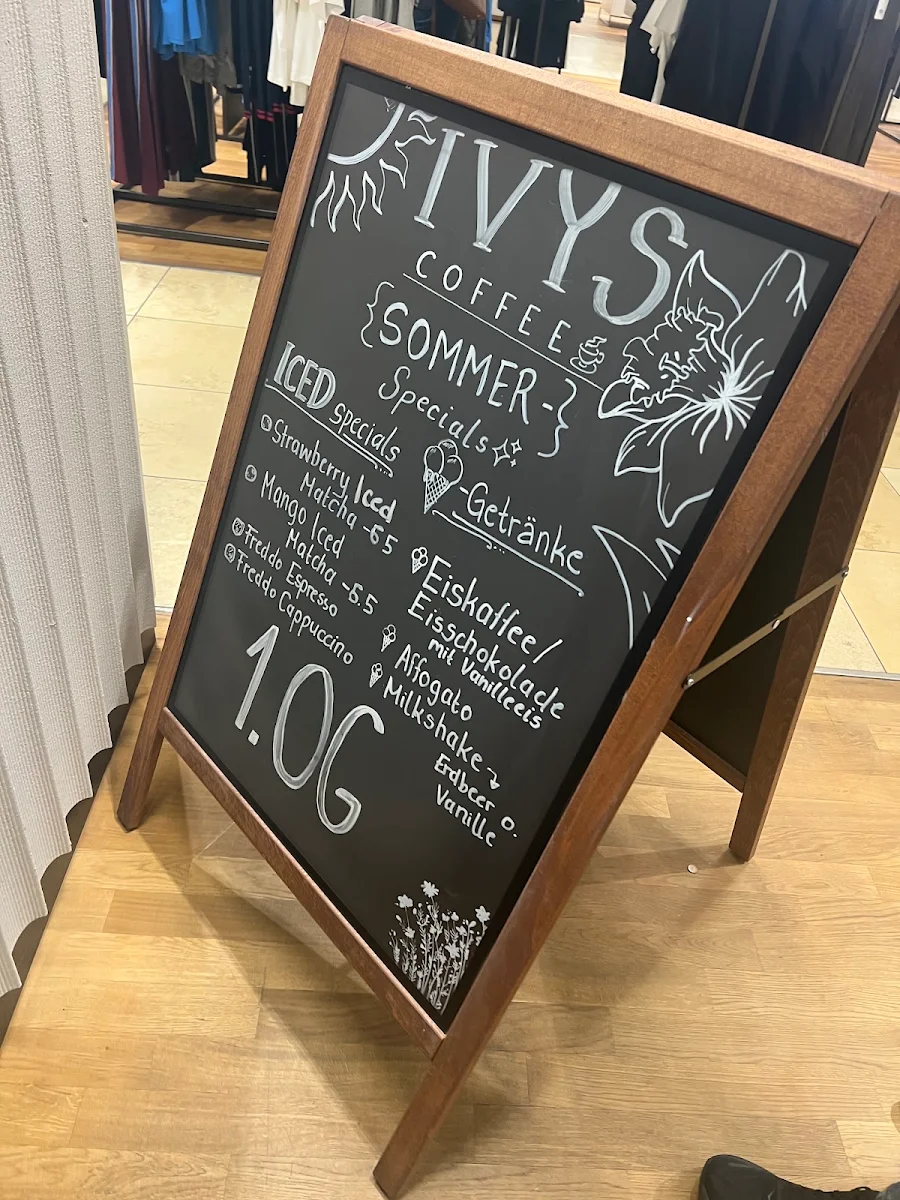 IVYS
COFFEE
{SOMMER-}
Specials
ICED specials
Strawberry Iced
Matcha -65
Mango Iced
Matcha -6.5
Freddo Espresso
Freddo Cappuccino
1.OG
-Getränke
Eiskaffee/
Eisschokolade
mit Vanilleeis
Affogato
Milkshake
Erdbeer o.
Vanille